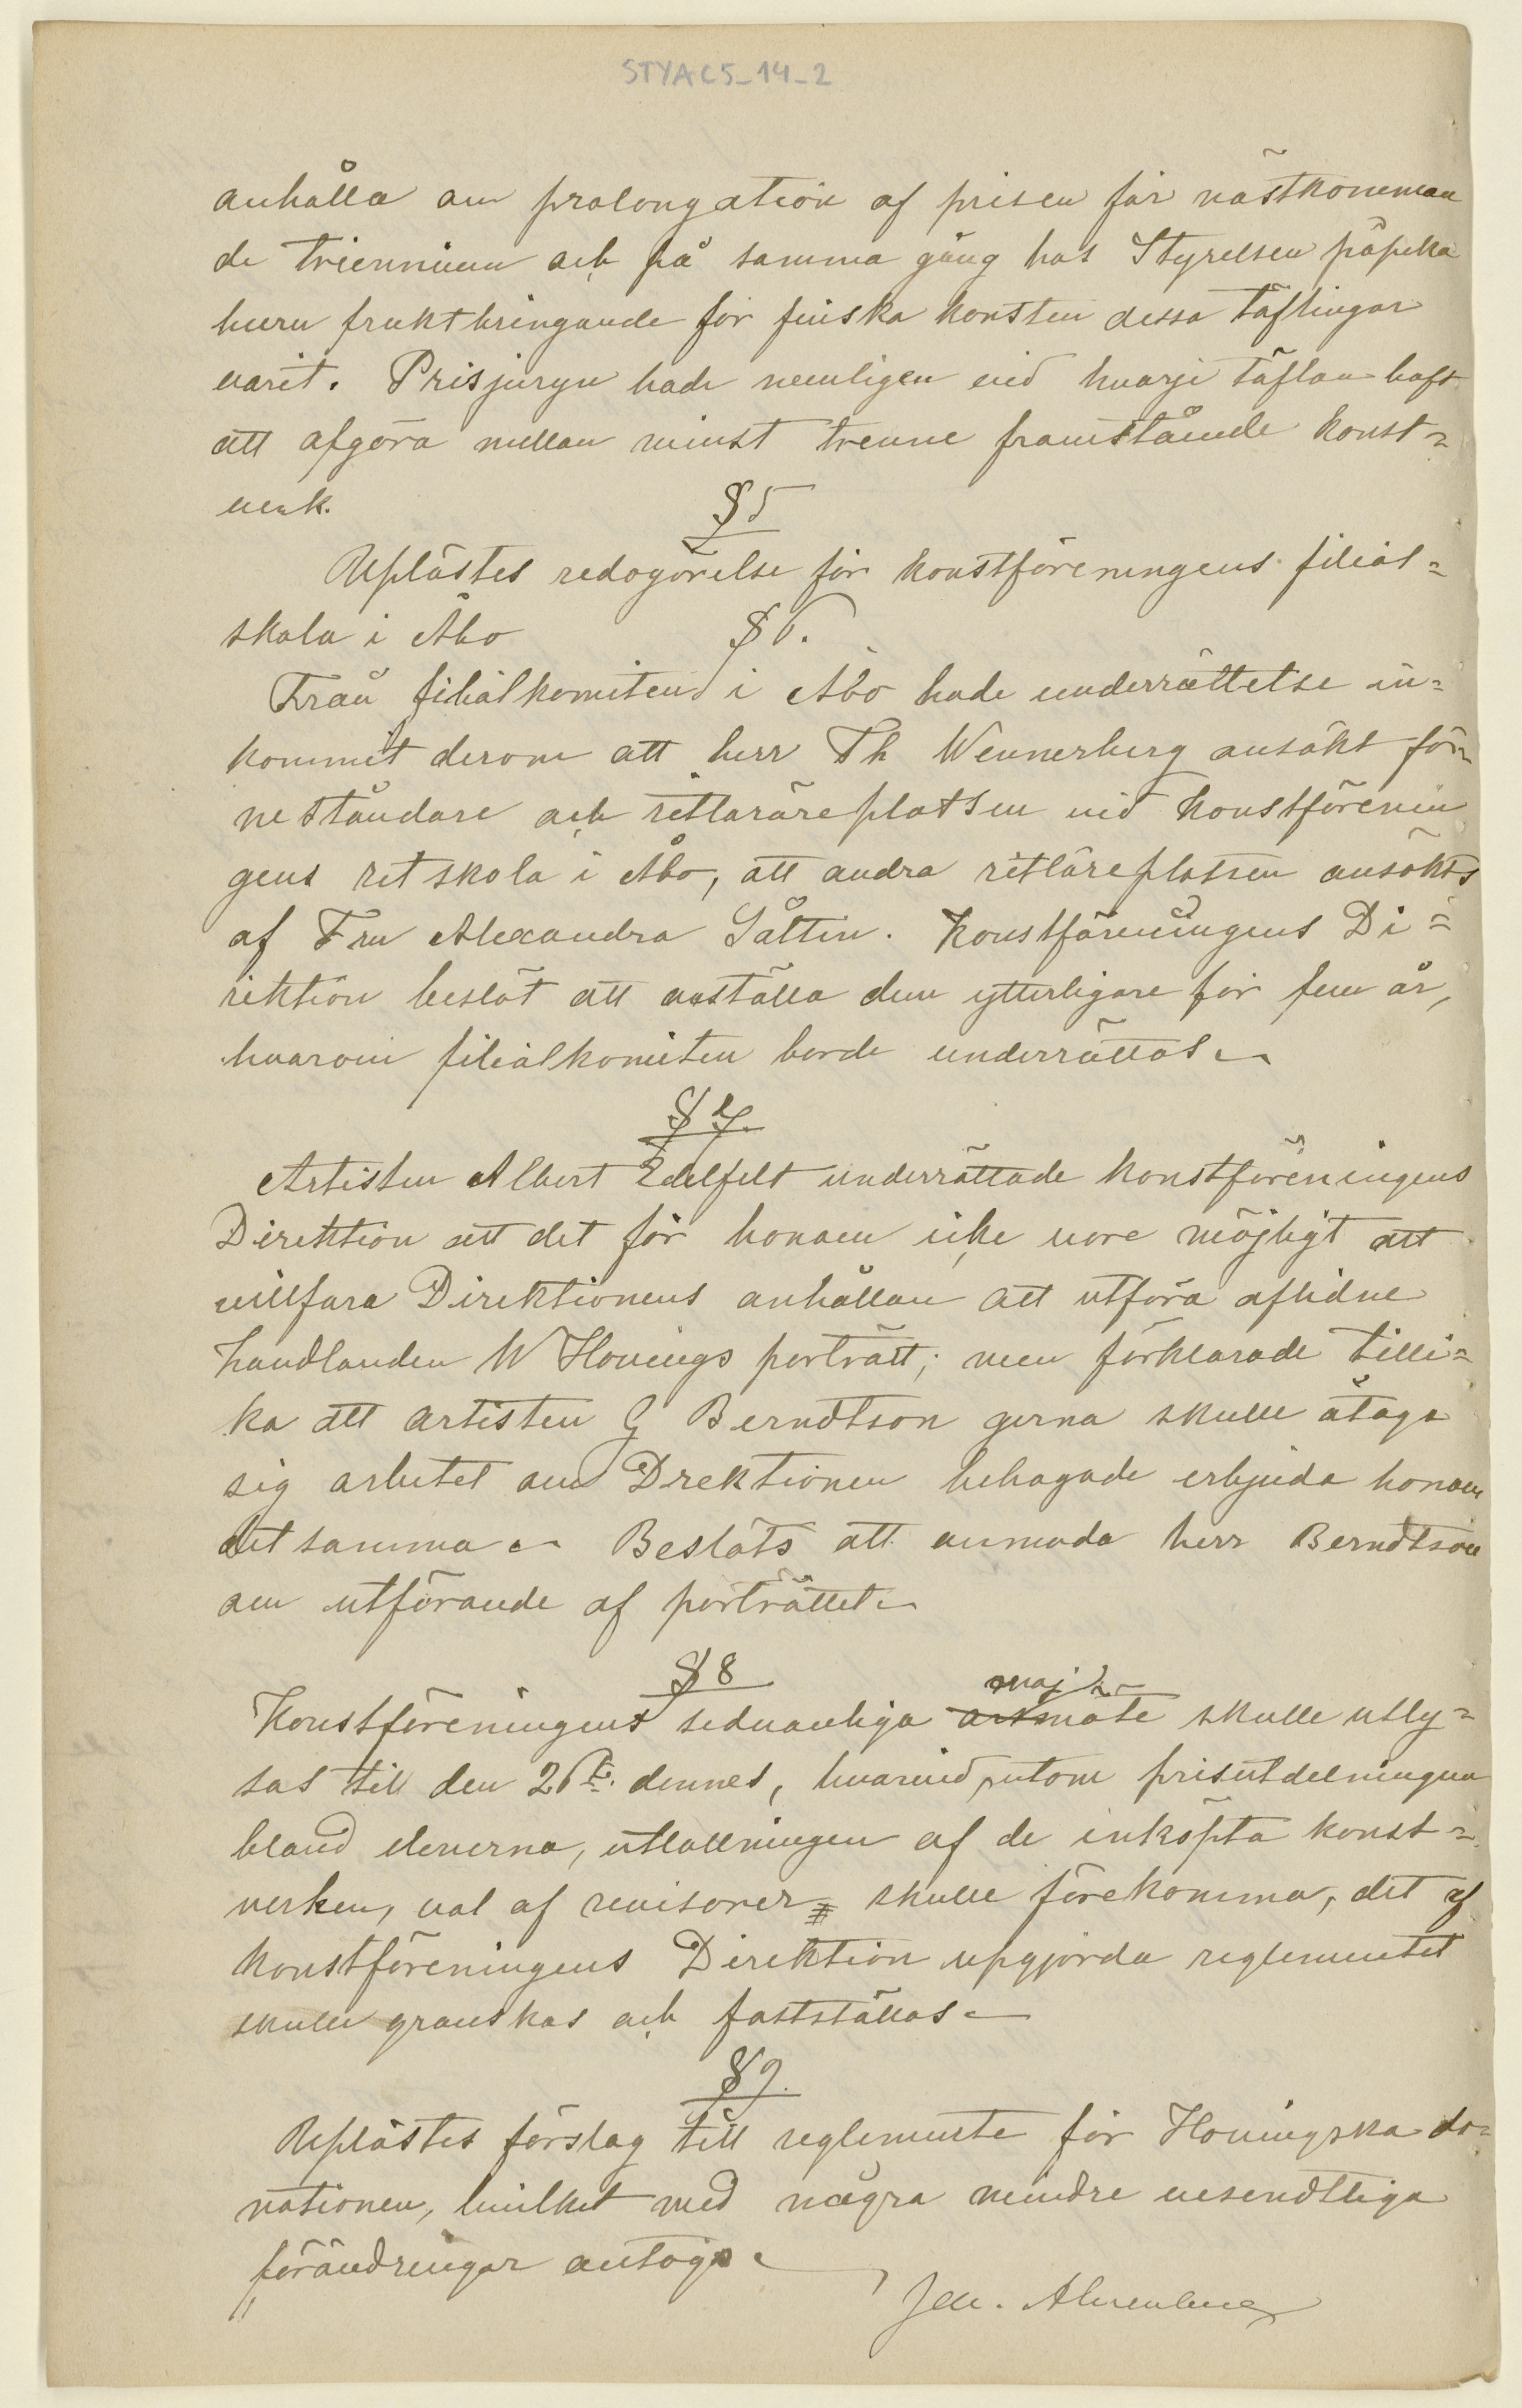 STYAC5_14_2
anhålla om prolongation af prisen för nästkomman
de triennium och på samma gång hos Styrelsen påpeka
huru fruktbringande för finska konsten dessa täflingar
varit. Prisjuryn hade nemligen vid hvarje täflan haft
att afgöra mellan minst trenne framstående konst=
verk.
§ 5
Uplästes redogörelse för konstföreningens filial=
skola i Åbo
§ 6.
Från filialkomiten i Åbo hade underrättelse in=
kommit derom att herr Th Wennerberg ansökt för
ne ståndare och ritlärareplatsen vid Konstförenin
gens ritskola i Åbo, att andra ritläreplatsen ansökts
af Fru Alexandra Såltin. Konstföreningens Di=
rektion beslöt att anställa dem ytterligare för fem år,
hvarom filialkomiten borde underrättas.
§ 7.
Artisten Albert Edelfelt underrättade Konstföreningens
Direktion att det för honom icke vore möjligt att
villfara Direktionens anhållan att utföra aflidne
handlanden W Hovings porträtt; men förklarade tilli=
ka att artisten G Berndtson gerna skulle åtaga
sig arbetet om Drektionen behagade erbjuda honom
detsamma. Beslöts att anmoda herr Berndtson
om utförande af porträttet.
§ 8
maj
Konstföreningens sedvanliga årsmöte skulle utly=
sas till den 26te dennes, hvarvid, utom prisutdelningen
bland eleverna, utlottningen af de inköpta konst=
verken, val af revisorer # skulle förekomma, det af
konstföreningens Direktion upgjorda reglementet
skulle granskas och fastställas.
§ 9.
Uplästes förslag till reglemente för Hovingska do=
nationen, hvilket med några mindre vesendtliga
förändringar antogs.
Jac. Ahrenberg